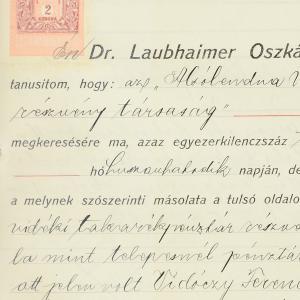 2
KORONA
Én Dr. Laubhaimer Oszká
tanusitom, hogy: az „Alsólendva
részvény társaság"
megkeresésére ma, azaz egyezerkilenczszáz
hó huszonhatodik napján, de
a melynek szószerinti másolata a tulsó oldalo
vidéki takarékpénztár részvé
la mint telepesnél pénztár
att jelen volt Vidóczy Ferenc